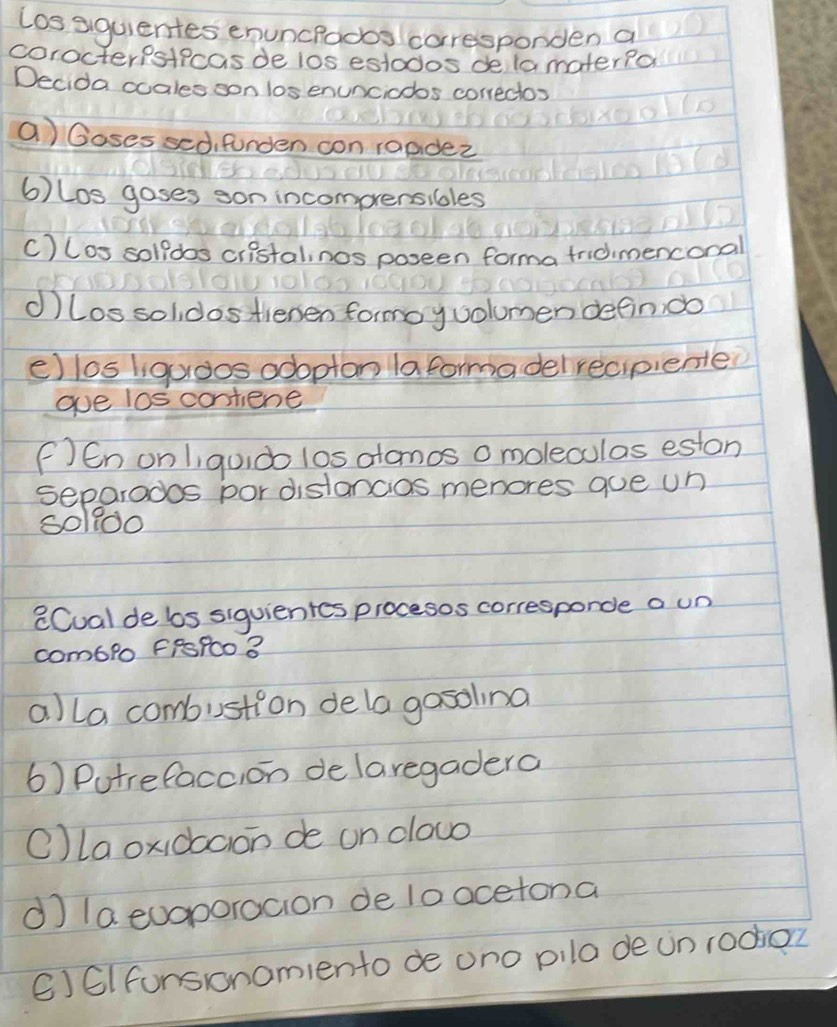 Los siguientes enunciados corresponden a
caracteristicas de los estados de la materia
Decida cuales son los enunciados correctos
a) Gases sedifunden con rapidez
b) Los gases son incomprensibles
c) Los solidos cristalinos poseen forma tridimenconal
d) Los solidos tienen forma y volumen definido
e) los liquidos adoptan la forma del recipiente
que los contiene
f) En un liquido los atomos o moleculas estan
separados por distancias menores que un
solido
¿Cual de los siguientes procesos corresponde a un
cambio Fisico?
a) La combustion de la gasolina
b) Putrefacción de laregadera
c) La oxidación de un clavo
d) la evaporacion de la acetona
e) El funsionamiento de una pila de un radio